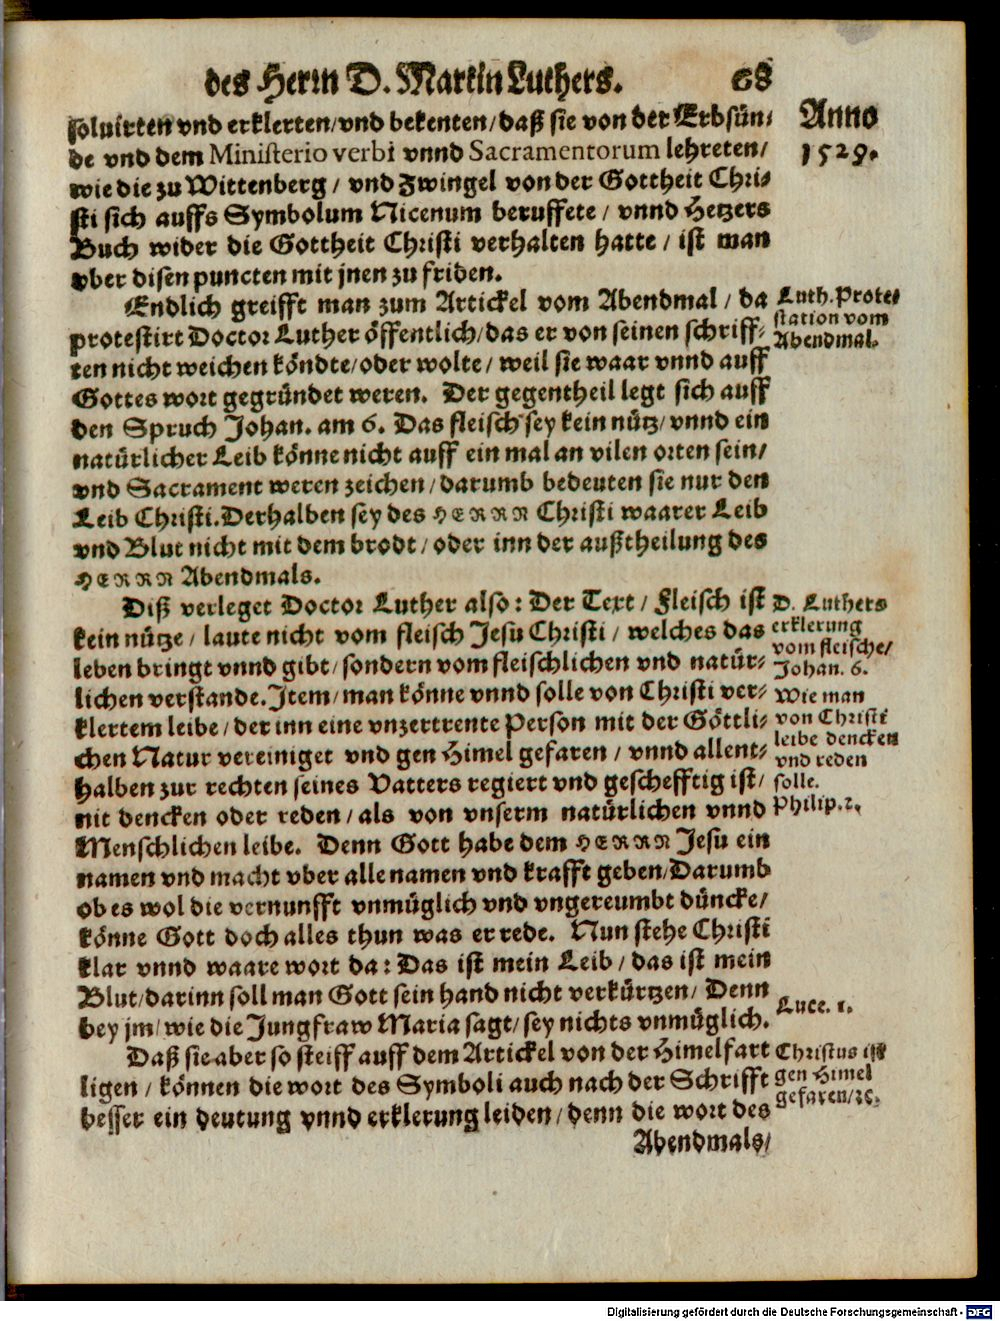 des Herrn D. Martin Luthers. 68
soluirten vnd erklerten/vnd bekenten/daß sie von der Erbsün-
de vnd dem Ministerio verbi vnnd Sacramentorum lehreten/
wie die zu Wittenberg / vnd Zwingel von der Gottheit Chri-
sti sich auffs Symbolum Nicenum beruffete / vnnd Hetzers
Buch wider die Gottheit Christi verhalten hatte / ist man
vber disen puncten mit jnen zu friden.
Anno
1529.
Endlich greifft man zum Artickel vom Abendmal / da
protestirt Doctor Luther öffentlich/das er von seinen schriff-
ten nicht weichen köndte/oder wolte / weil sie waar vnnd auff
Gottes wort gegründet weren. Der gegentheil legt sich auff
den Spruch Johan. am 6. Das fleisch sey kein nütz/ vnnd ein
natürlicher Leib könne nicht auff ein mal an vilen orten sein/
vnd Sacrament weren zeichen / darumb bedeuten sie nur den
Leib Christi. Derhalben sey des HERRN Christi waarer Leib
vnd Blut nicht mit dem brodt / oder inn der außtheilung des
HERRN Abendmals.
Luth. Prote-
station vom
Abendmal.
Diß verleget Doctor Luther also: Der Text / Fleisch ist
kein nütze / laute nicht vom fleisch Jesu Christi / welches das
leben bringt vnnd gibt/ sondern vom fleischlichen vnd natür-
lichen verstande. Item/ man könne vnnd solle von Christi ver-
klertem leibe / der inn eine vnzertrente Person mit der Göttli-
chen Natur vereiniget vnd gen Himel gefaren / vnnd allent-
halben zur rechten seines Vatters regiert vnd gescheffttig ist/
nit dencken oder reden / als von vnserm natürlichen vnnd
Menschlichen leibe. Denn Gott habe dem HERRN Jesu ein
namen vnd macht vber alle namen vnd krafft geben/Darumb
ob es wol die vernunfft vnmüglich vnd vngereumbt düncke/
könne Gott doch alles thun was er rede. Nun stehe Christi
klar vnnd waare wort da: Das ist mein Leib / das ist mein
Blut/darinn soll man Gott sein hand nicht verkürtzen/ Denn
bey jm/ wie die Jungfraw Maria sagt/ sey nichts vnmüglich.
D. Luthers
erklerung
vom fleische/
Johan. 6.
Wie man
von Christi
leibe dencken
vnd reden
solle.
Philip. 2.
Luce. 1.
Daß sie aber so steiff auff dem Artickel von der Himelfart
ligen / können die wort des Symboli auch nach der Schrifft
besser ein deutung vnnd erklerung leiden / denn die wort des
Abendmals/
Christus ist
gen Himel
gefaren/ꝛc.
Digitalisierung gefördert durch die Deutsche Forschungsgemeinschaft - DFG